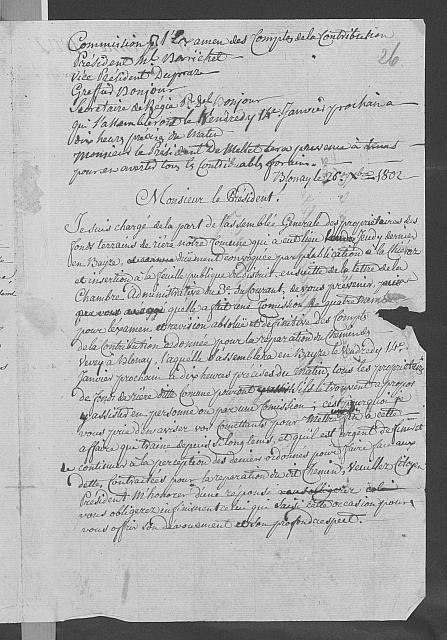 Commission pr l'Examen des Compts de la Contribution
Président Mr Borrichel
Vice Président Dupraz
Greffié Bonjour
Secretaire de Regie Pr Del Bonjour
qui S'assembleront le Vendredy 1er Janvier prochain a
dix heures précise du Matin
Monsieur le Président de Mellet sera
pour en avertir tous les Contribuables
Blonay le 26 Xbre 1802
26
Monsieur le Président.
Je suis chargé de la part de l'assemblée Générale des propriétaires des
fonds terrains de rière notre Comune qui a eut lieu Jeudy dernier
en Bayze, dûement convoquée par publication à la
et insertion à la feuille publique du district, ensuitte de la lettre de la
Chambre administrative du Dr. du Courant, de vous prévenir,
quelle a fait une Comission de quatre Membres
pour l'examen et revision absolue et définitive des Compts
de la Contribution ordonnée pour la réparation du Chemin de
Vevey à Blonay, laquelle s'assemblera en Bayze le Vendredy 1er
Janvier prochain à dix heures précises du Matin, tous les propriétaires
de fonds de rière dite Comune pouvant s'ils le trouvent a propos
y assister en personne ou par une Comission; c'est pourquoi je
vous prie d'en aviser vos Comettants pour Mettre fin à cette
affaire qui traine depuis si longtems, et qu'il est urgent de finir et
de continuer à la perception des deniers ordonnés pour faire face aux
dettes Contractées pour la reparation du dit Chemin, veuillez Citoyen
Président M'honorer d'une reponse
vous obligerez infiniment celui qui saisi cette occasion pour
vous offrir son devouement et son profond respect.